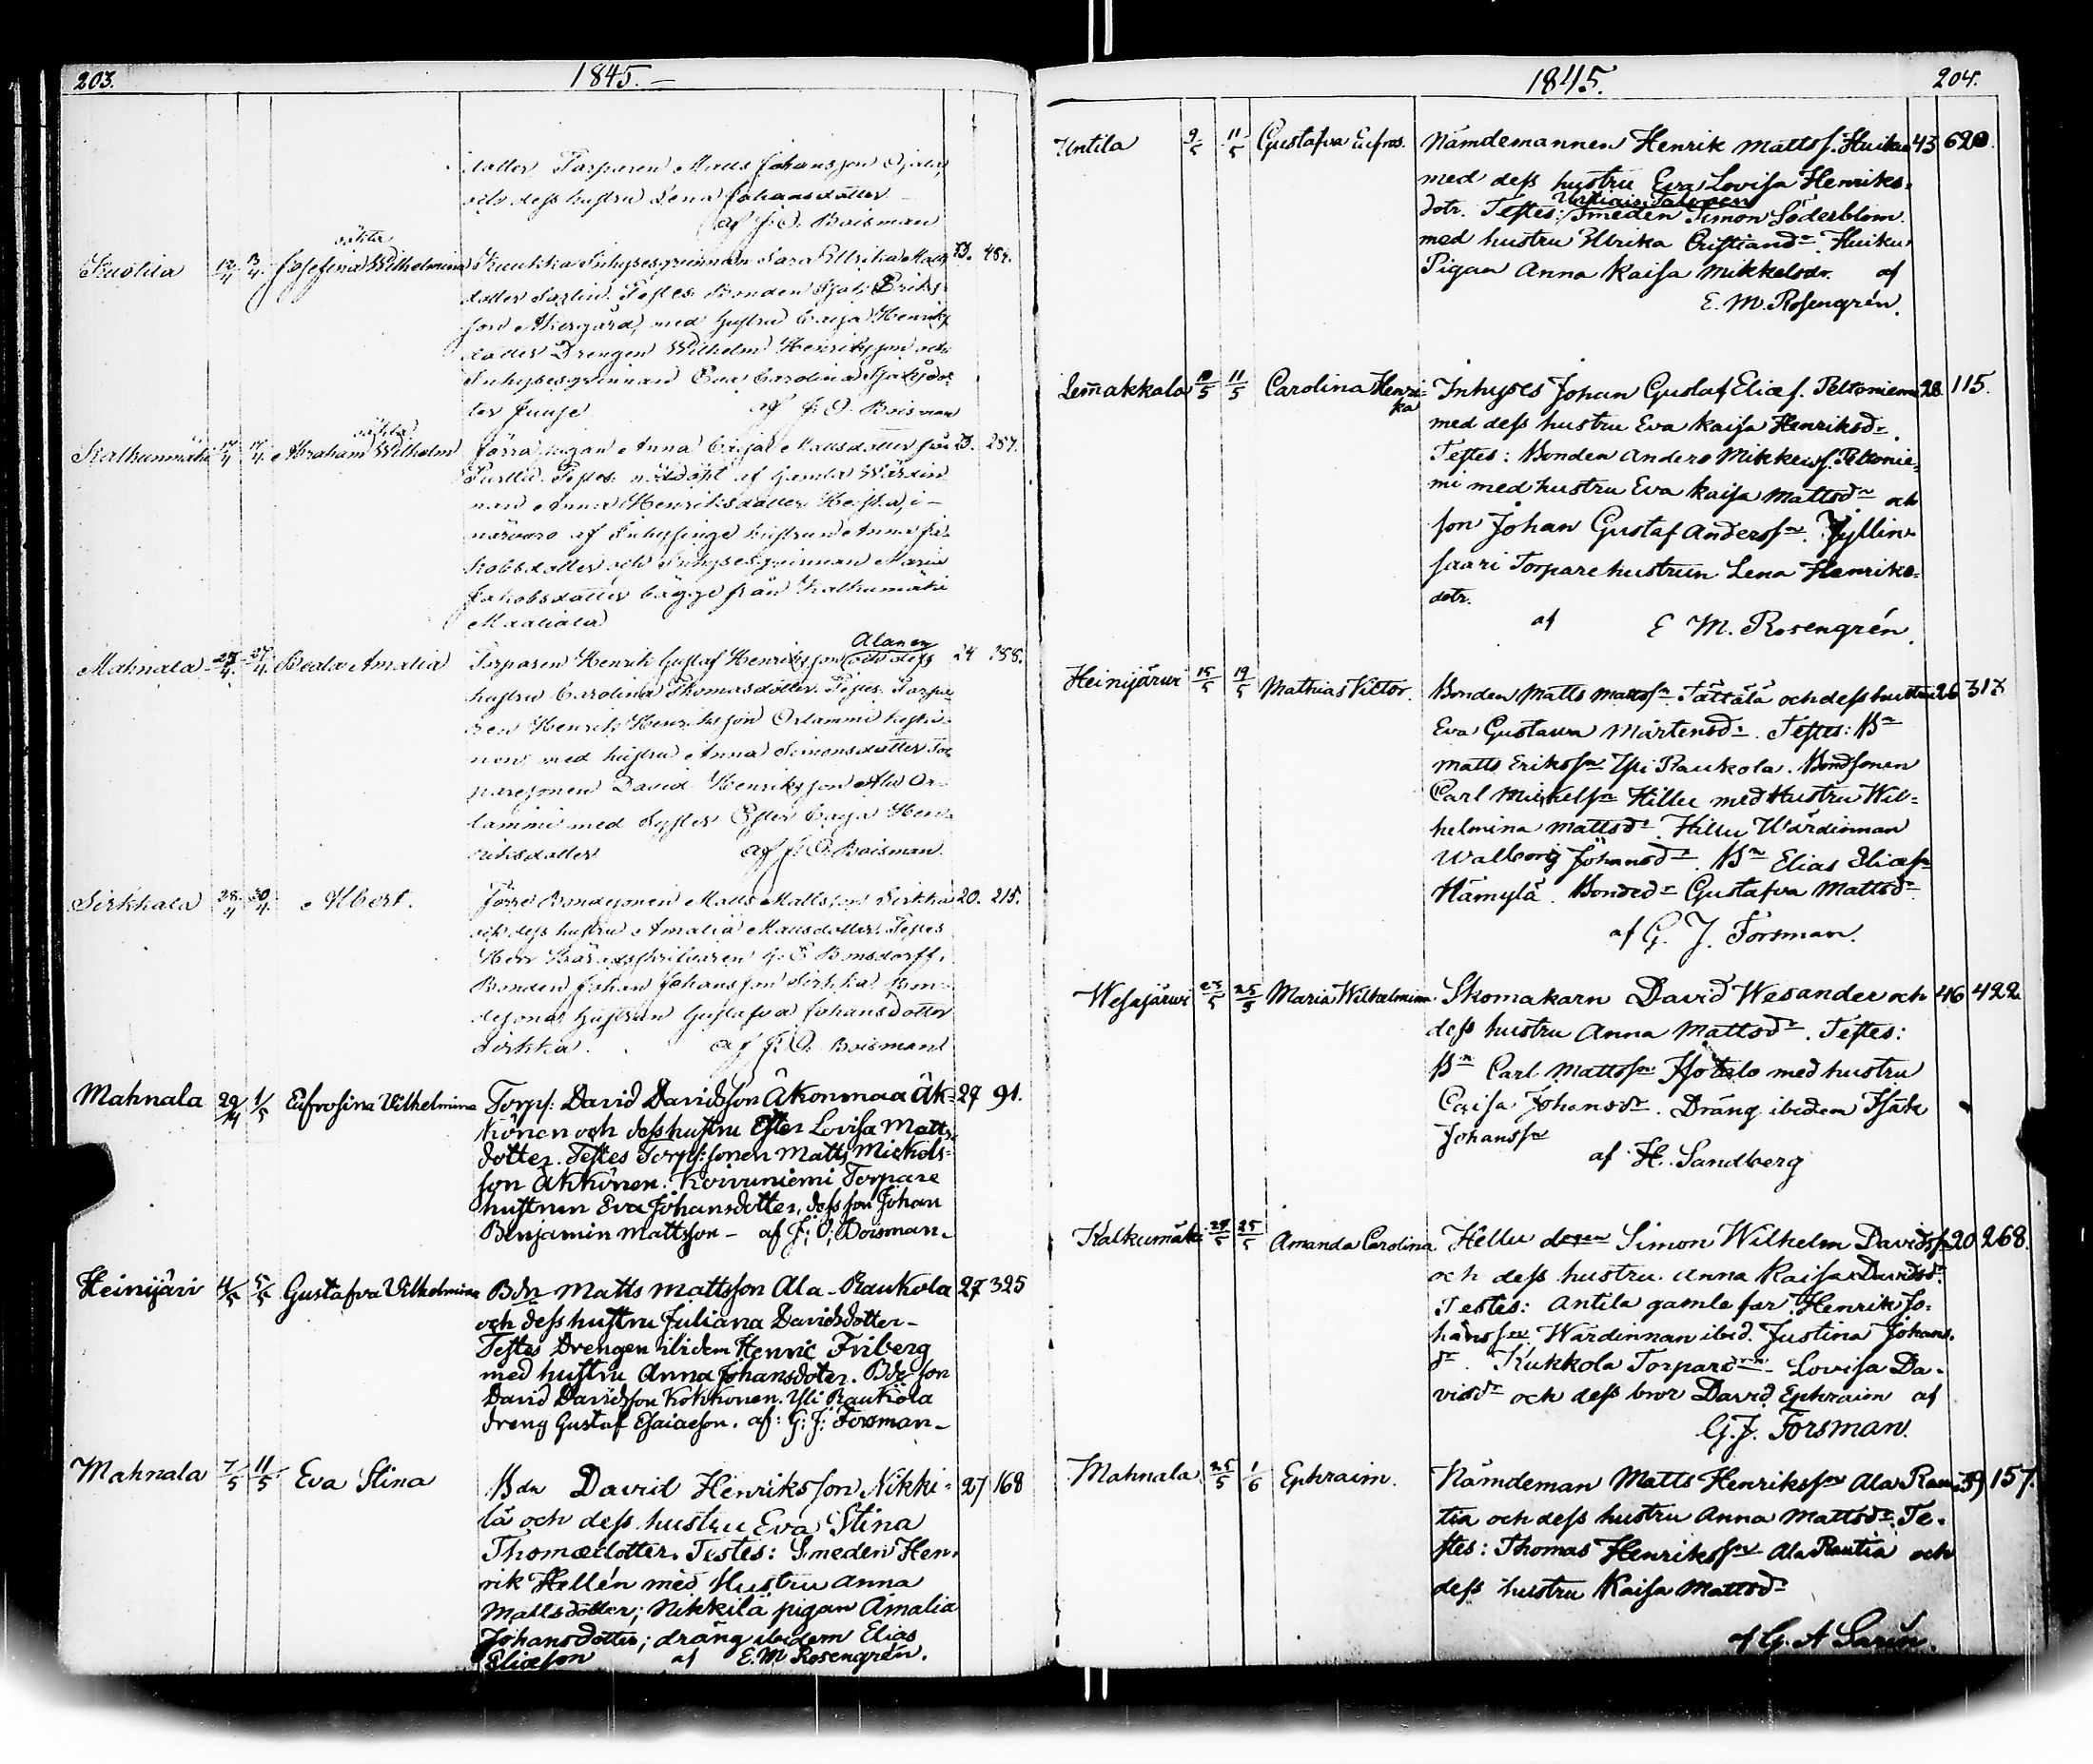 203.
1845.
dotter Torparen Matts Johansson Ojala,
och dess hustru Lena Johansdotter
af J. O. Boisman
oäkta
13/4 Josefina Wilhelmina Kuukka Inhysesqvinnan Sara Ulrika Matts 484.
dotter Testes Bonden Isak Eriks
son med hustru Caisa Henriks
dotter Drengen Wilhelm Henriksson och
Inhysesqvinnan Eva Carolina Isaksdot
ter af J. O. Boisman
oäkta
Kalkunmäki 17/4 Abraham Wilhelm förra pigan Anna Caisa Mattsdotter från 257.
Testes nöddöpt af gamla Wärdin
nan Anna Henriksdotter i
närvaro af Inhysinge hustrun Anna Ja
kobsdotter och Inhysesqvinnan Maria
Jakobsdotter bägge från Kalkumäki
Alanen
Mahnala 27/4 Beata Amalia Torparen Henrik Gustaf Henriksson och dess 24
hustru Carolina Thomasdotter. Testes. Torpa
ren Henrik Henriksson Orlammi
med hustru Anna Simonsdotter Tor
paresonen David Henriksson Ala Or
lammi med Syster Ester Caisa Hen
riksdotter af J. O. Boisman.
Sirkkala 28/4 30/4 Albert. Förre Bondesonen Matts Mattsson Sirkka 20. 215.
och dess hustru Amalia Mattsdotter. Testes
Herr Häradsskrifvaren G. E. Bonsdorff,
Bonden Johan Johansson Sirkka Bon
desones hustrun Gustafva Johansdotter
Sirkka. af J. O. Boisman
Mahnala 29/4 1/5 Eufrosina Vilhelmina Torp: David Davidsson Äkonmaa Äk- 27 91.
könen och dess hustru Ester Lovisa Matts
dotter. Testes Torp: sonen Matts Mickels
son Äkkönen. Koivuniemi Torpare
hustrun Eva Johansdotter, dess son Johan
Benjamin Mattsson - af J: O: Boisman.
Heinijäri 4/5 5/5 Gustafva Vilhelmina Bdn Matts Mattsson Ala-Raukola 27 325
och dess hustru Juliana Davidsdotter-
Testes Drengen ibidem Henric Friberg
med hustru Anna Johansdoter. Bde son
David Davidsson Kokkonen. Yli Raukola
dreng Gustaf Esaiaeson. af: G: J: Forsman-
Mahnala 7/5 11/5 Eva Stina Bdn David Henriksson Nikki- 27 168
lä och dess hustru Eva Stina
Thomædotter. Testes: Smeden Hen
rik Hellén med Hustru Anna
Mattsdotter; Nikkilä pigan Amalia
Johansdotter; dräng ibidem Elias
Eliæson af E. M Rosengrén.
1845.
204.
Untila 9/5 11/5 Gustafva Eufros. Nämdemannen Henrik Mattss. Huiku 43 620.
med dess hustru Eva Lovisa Henriks-
dotr. Testes: Smeden Simon Söderblom
med hustru Ulrika Cristiandr. Huiku
Pigan Anna Kaisa Mikkelsdr. af
E. M. Rosengrén.
Lemakkala 10/5 11/5 Carolina Henri- Inhyses Johan Gustaf Eliæs. Peltoniemi 28. 115.
ka med dess hustru Eva Kaisa Henriksdr.
Testes: Bonden Anders Mikkelss. Peltonie-
mi med hustru Eva Kaisa Mattsdr och
son Johan Gustaf Anderssn. Jyllin-
saari Torpare hustrun Lena Henriks-
dotr.
af E M. Rosengrén.
Heinijärwi 15/5 19/5 Mathias Victor. Bonden Matts Mattssn. Tättälä och dess hustru 26 313
Eva Gustava Mårtensdr. Testes: Bn
Matts Erikssn Yli Raukola. Bondsonen
Carl Mickelsn Hillu med Hustru Wil-
helmina Mattsdr. Hillu Wärdinnan
Walborig Johansdr. Bn Elias Eliæsn
Hämylä. Bonded. Gustafva Mattsdr
af G. J. Forsman.
Wesajärwi 23/5 25/5 Maria Wilhelmina Skomakarn David Wesander och 46 422
dess hustru Anna Mattsdr. Testes:
Bn Carl Mattssn Isotalo med hustru
Caisa Johansdr. Dräng ibidem Isak
Johanssn
af H. Sandberg
Kalkumäki 24/5 25/5 Amanda Carolina Hellu Simon Wilhelm Davidssn 20 268.
och dess hustru. Anna Kaisa Davidsdr.
Testes: Antila gamle far Henrik Jo-
hanssn Wärdinnan ibid. Justina Johans-
dr. Kukkola Torpare Lovisa Da-
vidsdr och dess bror David Ephraim af
G. J. Forsman.
Mahnala 25/5 1/6 Ephraim. Nämdeman Matts Henrikssn Ala Rau- 39 157.
tia och dess hustru Anna Mattsdr. Te-
stes: Thomas Henrikssn Ala Rautia och
dess hustru Kaisa Mattsdr
af G. A Sarin.